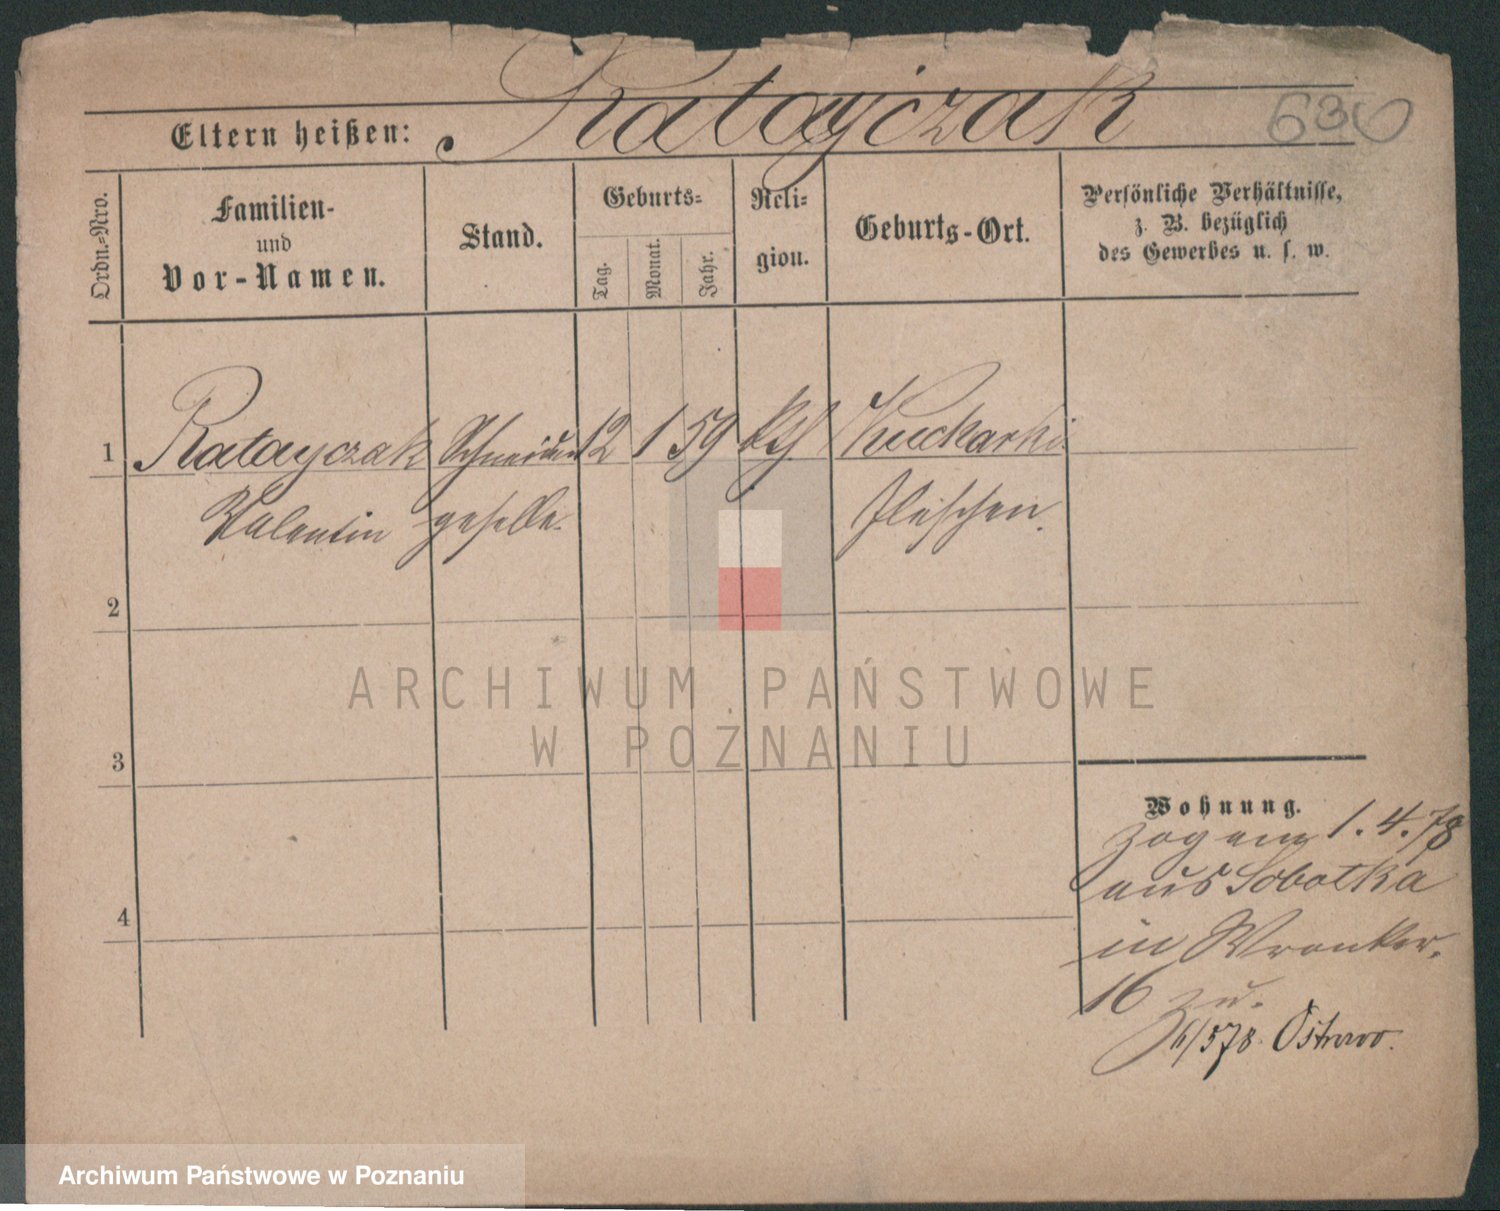 Ratayczak
630
Eltern heißen:
Ordn.=Nro.
Familien-
und
Vor-Namen.
Stand.
Geburts=
Tag.
Monat.
Jahr.
Reli=
gion.
Geburts-Ort.
Persönliche Verhältnisse,
z. B. bezüglich
des Gewerbes u. s. w.
1 Ratayczak Schneider 12 1 59 kth Kucharki
Valentin geselle. Pleschen.
2
3
4
Wohnung.
zog am 1.4.78
aus Sobotka
in Wronker.
16 zu.
78. Ostrowo.
ARCHIWUM PAŃSTWOWE
W POZNANIU
Archiwum Państwowe w Poznaniu